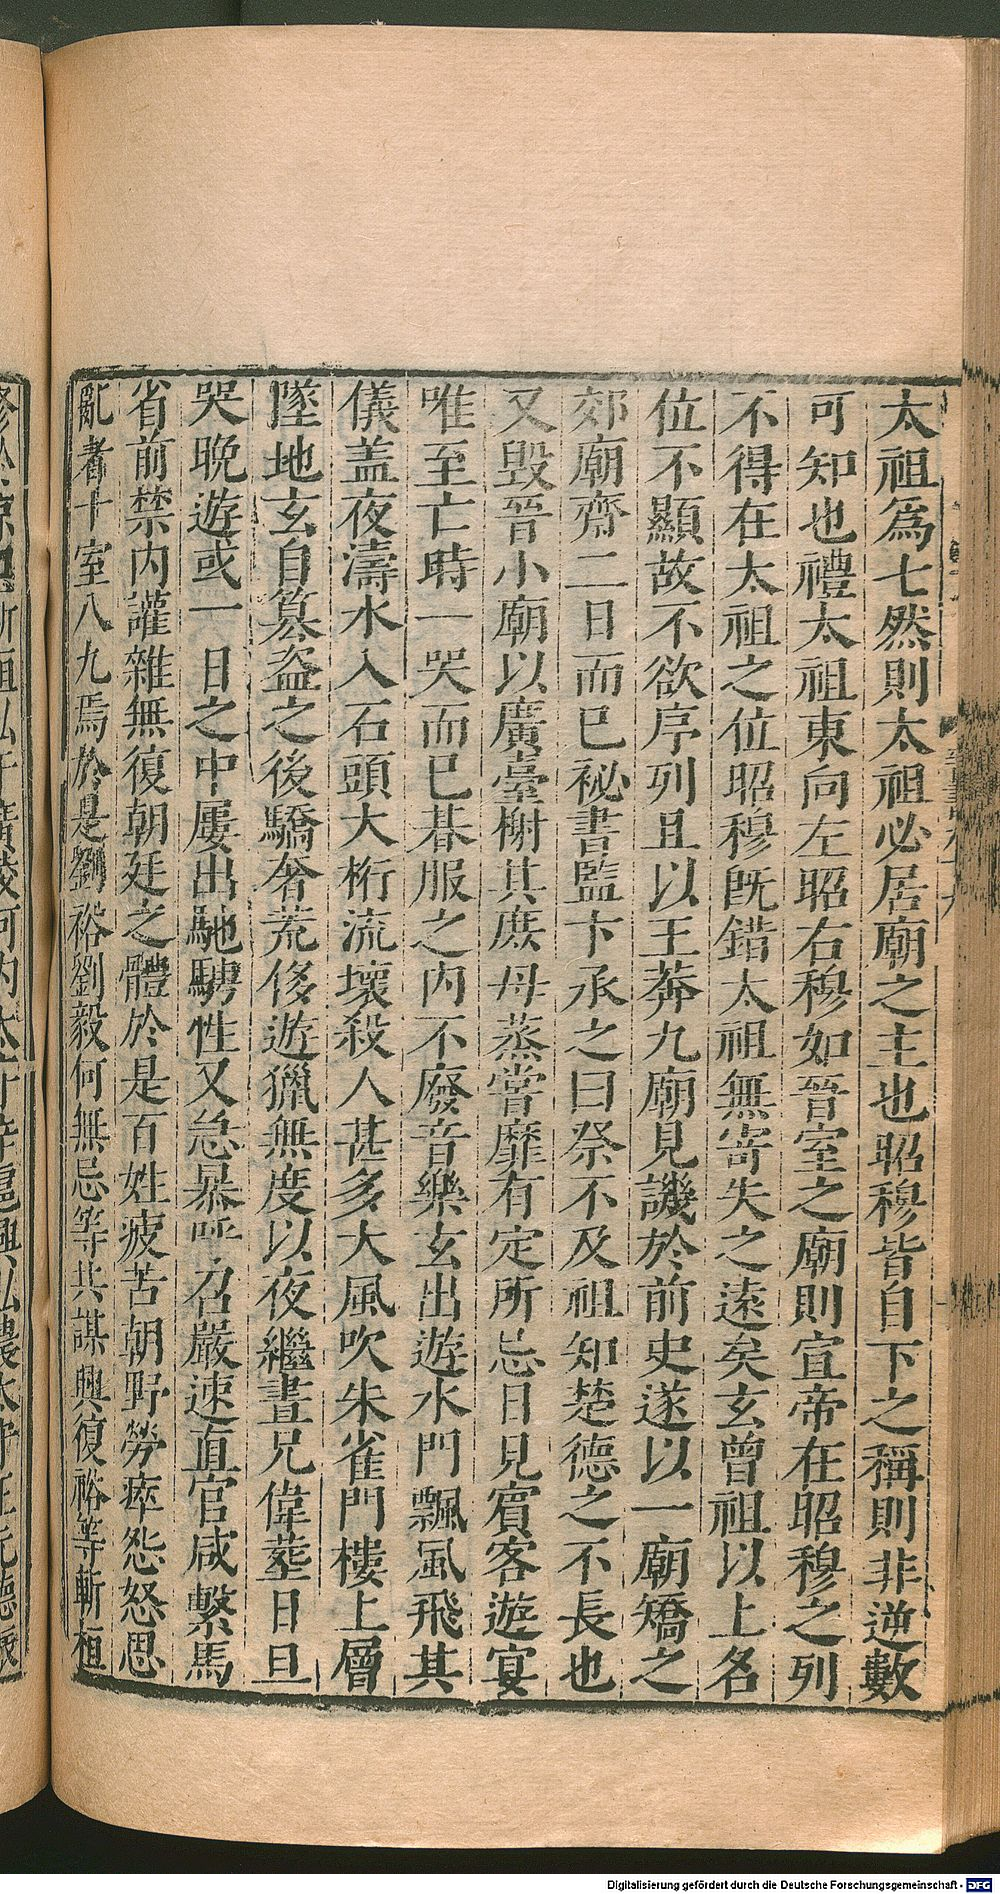 太祖爲七然則太祖必居廟之主也昭穆皆自下之稱則非逆數
可知也禮太祖東向左昭右穆如晉室之廟則宣帝在昭穆之列
不得在太祖之位昭穆既錯太祖無寄失之遠矣玄曾祖以上名
位不顯故不欲序列且以王莽九廟見譏於前史遂以一廟矯之
郊廟齋二日而已祕書監卞承之曰祭不及祖知楚德之不長也
又毀晉小廟以廣臺榭其庶母蒸嘗靡有定所忌日見賓客遊宴
唯至亡時一哭而已朞服之內不廢音樂玄出遊水門飄風飛其
儀蓋夜濤水入石頭大桁流壞殺人甚多大風吹朱雀門樓上層
墜地玄自篡盜之後驕奢荒侈遊獵無度以夜繼晝兄偉葬日旦
哭晚遊或一日之中屢出馳騁性又急暴呼召嚴速直官咸繫馬
省前禁內讙雜無復朝廷之體於是百姓疲苦朝野勞瘁怨怒思
亂者十室八九焉於是劉裕劉毅何無忌等共謀興復裕等斬桓
Digitalisierung gefördert durch die Deutsche Forschungsgemeinschaft - DFG